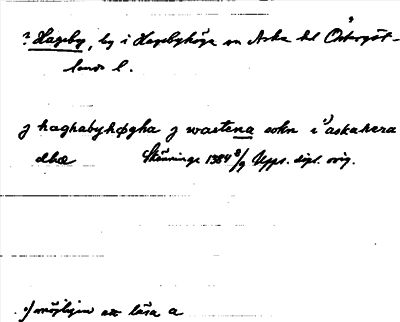 ? Hageby, by i Hagebyhöga sn Aska hd Östergöt-
lands l.
j haghabyhøgha j wastena sokn i 1) askahæra
dhæ Skänninge 1384 3/9 Upps. dipl. orig.
1) möjligen att läsa a